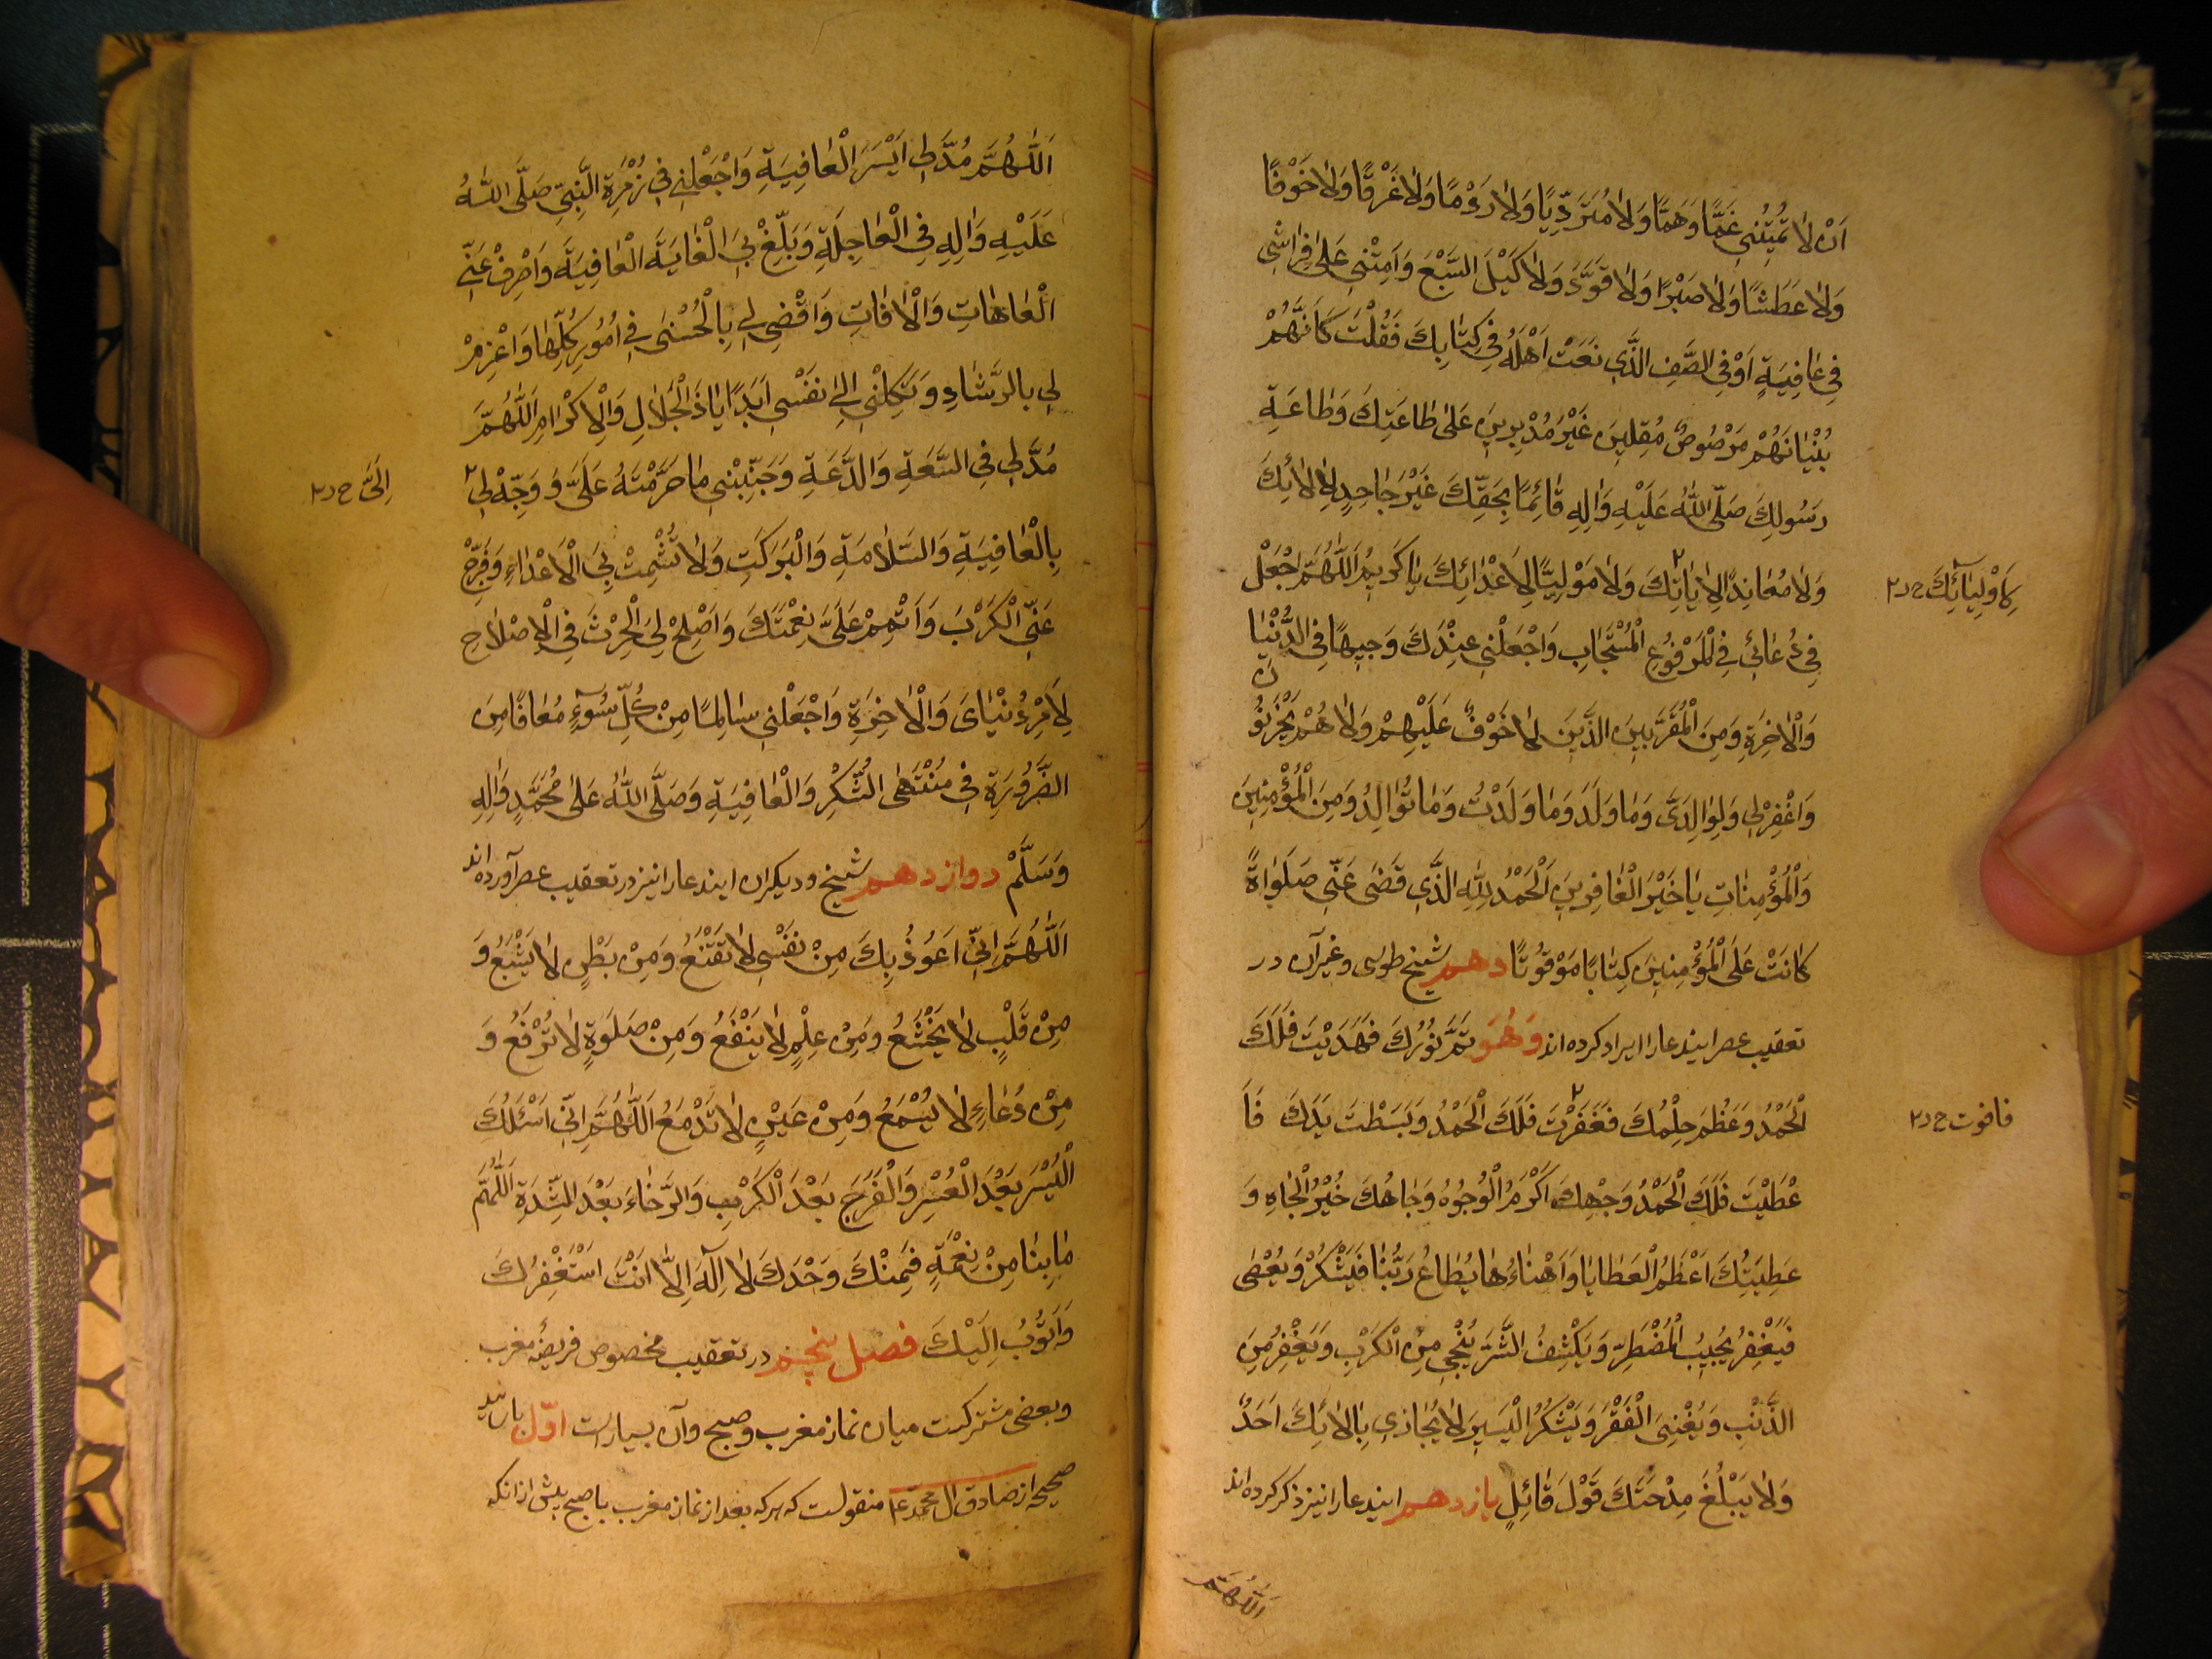 اَنْ لاٰ تُمِيتُنِي غَمًّا وَهَمًّا وَلاٰ مُتَرَدِّيًا وَلاٰ رَدْمًا وَلاٰ غَرْقًا وَلاٰ خَوْفًا
وَلاٰ عَطَشًا وَلاٰ صَبْرًا وَلاٰ قَوَدًا وَلاٰ كَيْلَ السَّبْعِ وَاَمِتْنِي عَلىٰ فِرٰاشِي
فِي عٰافِيَةٍ اَوْ فِي الصَّفِ الَّذِي نَعَتَّ اَهْلَهُ فِي كِتٰابِكَ فَقُلْتَ كَاَنَّهُمْ
بُنْيٰانَهُمْ مَرْصُوصٌ مُقِلِينَ غَيْرَ مُدْبِرِينَ عَلىٰ طٰاعَتِكَ وَطٰاعَةِ
رَسُولِكَ صَلَّى اللّٰهُ عَلَيْهِ وَاٰلِهِ قٰائِمًا بِحَقِّكَ غَيْرَ جٰاحِدٍ لِاٰلاٰئِكَ
وَلاٰ مُعٰانِدًا لِاٰيٰاتِكَ ۲ وَلاٰ مَوْلِيًّا لِاَعْدٰائِكَ يٰا كَرِيمُ اَللّٰهُمَّ اجْعَلْ
لِاَوْلِيٰائِكَ ح د ۲
فِي دُعٰائِي فِي الْمَرْفُوعِ الْمُسْتَجٰابِ وَاجْعَلْنِي عِنْدَكَ وَجِيهًا فِي الدُّنْيٰا
وَالْاٰخِرَةِ وَمِنَ الْمُقَرَّبِينَ الَّذِينَ لاٰ خَوْفٌ عَلَيْهِمْ وَلاٰ هُمْ يَحْزَنُونَ
وَاغْفِرْ لِي وَلِوٰالِدَيَّ وَمٰا وَلَدَ وَمٰا وَلَدْتُ وَمٰا تَوٰالِدُ وَمِنَ الْمُؤْمِنِينَ
وَالْمُؤْمِنٰاتِ يٰا خَيْرَ الْغٰافِرِينَ اَلْحَمْدُ لِلّٰهِ الَّذِي قَضىٰ عَنِّي صَلَوٰاةً
كٰانَتْ عَلَى الْمُؤْمِنِينَ كِتٰابًا مَوْقُوتًا دهم شيخ طوسى وغيرآن در
تعقيب عصر ايندعارا ايراد كرده اند وَهُوَ تَمَّ نُورُكَ فَهَدَيْتَ فَلَكَ
الْحَمْدُ وَعَظُمَ حِلْمُكَ فَغَفَرْتَ ۲ فَلَكَ الْحَمْدُ وَبَسَطْتَ يَدَكَ فَاَ
ح د ۲
عْطَيْتَ فَلَكَ الْحَمْدُ وَجْهُكَ اَكْرَمُ الْوُجُوهُ وَجٰاهُكَ خَيْرُ الْجٰاهِ وَ
عَطِيَّتُكَ اَعْظَمُ الْعَطٰايٰا وَاَهْنٰاءُهٰا يُطٰاعُ رَبُّنٰا فَيَشْكُرُ وَيُعْصٰى
فَيَغْفِرُ يُجِيبُ الْمُضْطَرِّ وَيَكْشِفُ الشَّرَّ يُنْجِي مِنَ الْكَرْبِ وَيَغْفِرُ مِنَ
الذَّنْبِ وَيُغْنِي الْفَقْرَ وَيَشْكُرُ الْيَسِيرَ لاٰ يُجٰازِي بِاٰلاٰئِكَ اَحَدٌ
وَلاٰ يَبْلُغُ مِدْحَتَكَ قَوْلَ قٰائِلٍ يازدهم ايندعارا نيز ذكر كرده اند
اَللّٰهُمَّ
اَللّٰهُمَّ مُدَّ لِي اَيْسَرَ الْعٰافِيَةِ وَاجْعَلْنِي فِي زُمْرَةِ النَّبِيِّ صَلَّى اللّٰهُ
عَلَيْهِ وَاٰلِهِ فِي الْعٰاجِلَةِ وَبَلِّغْ بِيَ الْغٰايَةَ الْعٰافِيَةَ وَاصْرِفْ عَنِّي
الْعٰاهٰاتِ وَالْاٰفٰاتِ وَاقْضِ لِي بِالْحُسْنٰى فِي اُمُورِي كُلِّهٰا وَاعْزِمْ
لِي بِالرَّشٰادِ وَتَكِلْنِي اِلىٰ نَفْسِي اَبَدًا يٰا ذَا الْجَلاٰلِ وَالْاِكْرٰامِ اَللّٰهُمَّ
مُدَّ لِي فِي السَّعَةِ وَالدَّعَةِ وَجَنِّبْنِي مٰا حَرَّمْتَهُ عَلَيَّ وَ وَجِّهْ لِي ۲
اِلَيَّ ح د ۲
بِالْعٰافِيَةِ وَالسَّلاٰمَةِ وَالْبَرَكَتِ وَلاٰ تُشْمِتْ بِيَ الْاَعْدٰاءَ وَفَرِّجْ
عَنِّي الْكَرْبَ وَاَتْمِمْ عَلَيَّ نِعْمَتَكَ وَاَصْلِحْ لِيَ الْحِرْثَ فِي الْاِصْلاٰحِ
لِاَمْرِ دُنْيٰايَ وَالْاٰخِرَةِ وَاجْعَلْنِي سٰالِمًا مِنْ كُلِّ سُوۤءٍ مُعٰافًا مِنَ
الضَّرُورَةِ فِي مُنْتَهَى الشُّكْرِ وَالْعٰافِيَةِ وَصَلَّى اللّٰهُ عَلىٰ مُحَمَّدٍ وَاٰلِهِ
وَسَلَّمْ دوازدهم شيخ و ديكران ايندعارا نيز در تعقيب عصر آورده اند
اَللّٰهُمَّ اِنِّي اَعُوذُ بِكَ مِنْ نَفْسٍ لاٰ تَقْنَعُ وَمِنْ بَطْنٍ لاٰ يَشْبَعُ وَ
مِنْ قَلْبٍ لاٰ يَخْشَعُ وَمِنْ عِلْمٍ لاٰ يَنْفَعُ وَمِنْ صَلَوةٍ لاٰ تُرْفَعُ وَ
مِنْ دُعٰاءٍ لاٰ يُسْمَعُ وَمِنْ عَيْنٍ لاٰ تَدْمَعُ اَللّٰهُمَّ اِنِّي اَسْئَلُكَ
الْيُسْرَ بَعْدَ الْعُسْرِ وَالْفَرَجَ بَعْدَ الْكَرْبِ وَالرَّخٰاءَ بَعْدَ الشِّدَةِ اَللّٰهُمَّ
مٰا بِنٰا مِنْ نِعْمَةٍ فَمِنْكَ وَحْدَكَ لاٰ اِلٰهَ اِلاّٰ اَنْتَ اَسْتَغْفِرُكَ
وَاَتُوبُ اِلَيْكَ فصل پنجم در تعقيب مخصوص فريضهٔ مغرب
وبعضى مشتركست ميان نماز مغرب وصبح وآن بسيارست اوّل باسانيد
صحيحه از صادق ال محمد ع م منقولست كه هركه بعد از نماز مغرب يا صبح پيش از انكه